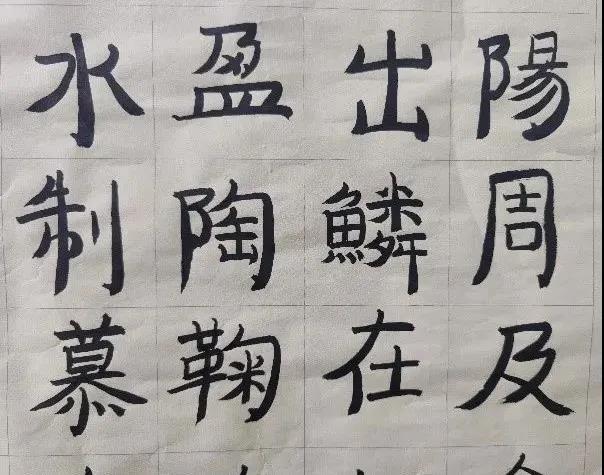 陽周及
出鱗在
盈陶鞠
水制慕